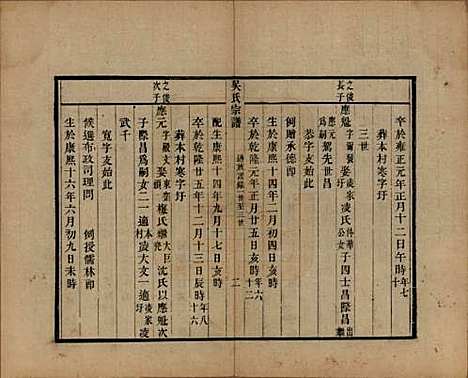 卒於雍正元年正月十二日午時年七十
葬本村寒字圩
三世
之俊長子應魁字爾發娶凌氏子四士昌際昌出嗣
應元爲嗣駕先世昌
恭字支始此
例贈承德郎
生於康熙十四年二月初四日亥時
卒於乾隆元年正月初一日亥時年六十二
吳氏宗譜
世至三世
二
配生康熙十四年九月十七日亥時
卒於乾隆廿五年十二月十三日辰時年八十六
葬本村寒字圩
之俊次子應元字娶權氏繼沈氏以應魁次
子際昌爲嗣女二一適本村凌大文一適凌家圩
武千
寬字支始此
候選布政司理問 例授儒林郎
生於康熙十六年六月初九日未時